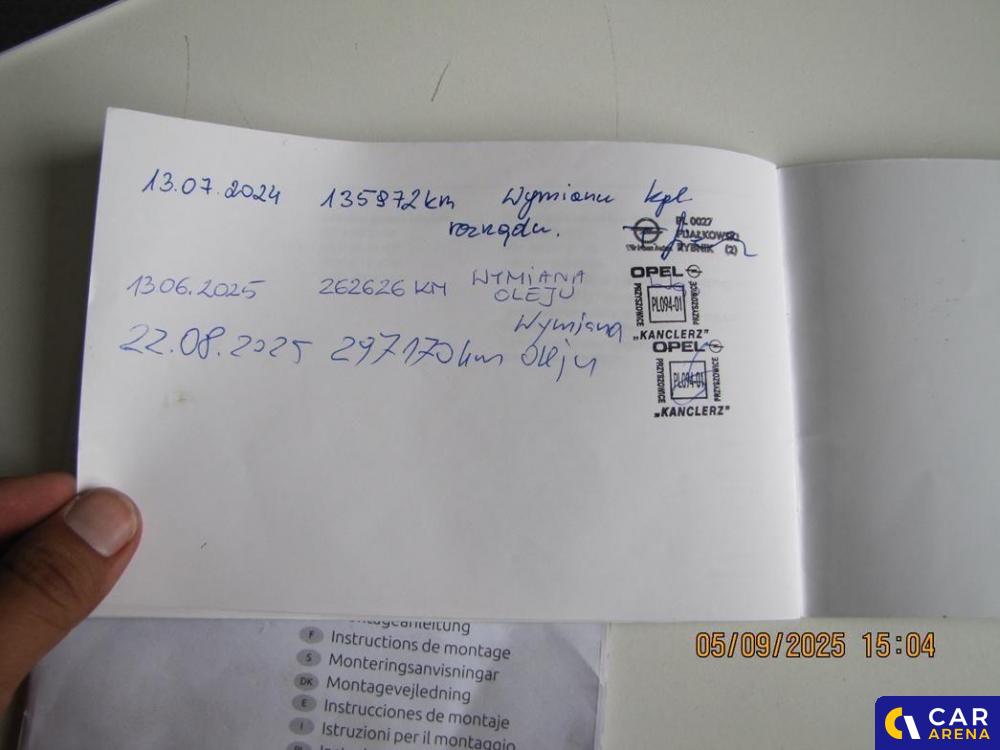 13.07.2024 135972km Wymiana kpl
rozrządu.
PL 0027
PIJAŁKOWSKI
RYBNIK (2)
13.06.2025 262626 KM WYMIANA
OLEJU
OPEL
PRZYSZOWICE PL094-01 PRZYSZOWICE
„KANCLERZ"
Wymiana
22.08.2025 297170km Oleju
OPEL
PRZYSZOWICE PL094-01 PRZYSZOWICE
„KANCLERZ"
F Instructions de montage
S Monteringsanvisningar
DK Montagevejledning
E Instrucciones de montaje
I Istruzioni per il montaggio
05/09/2025 15:04
CAR
ARENA